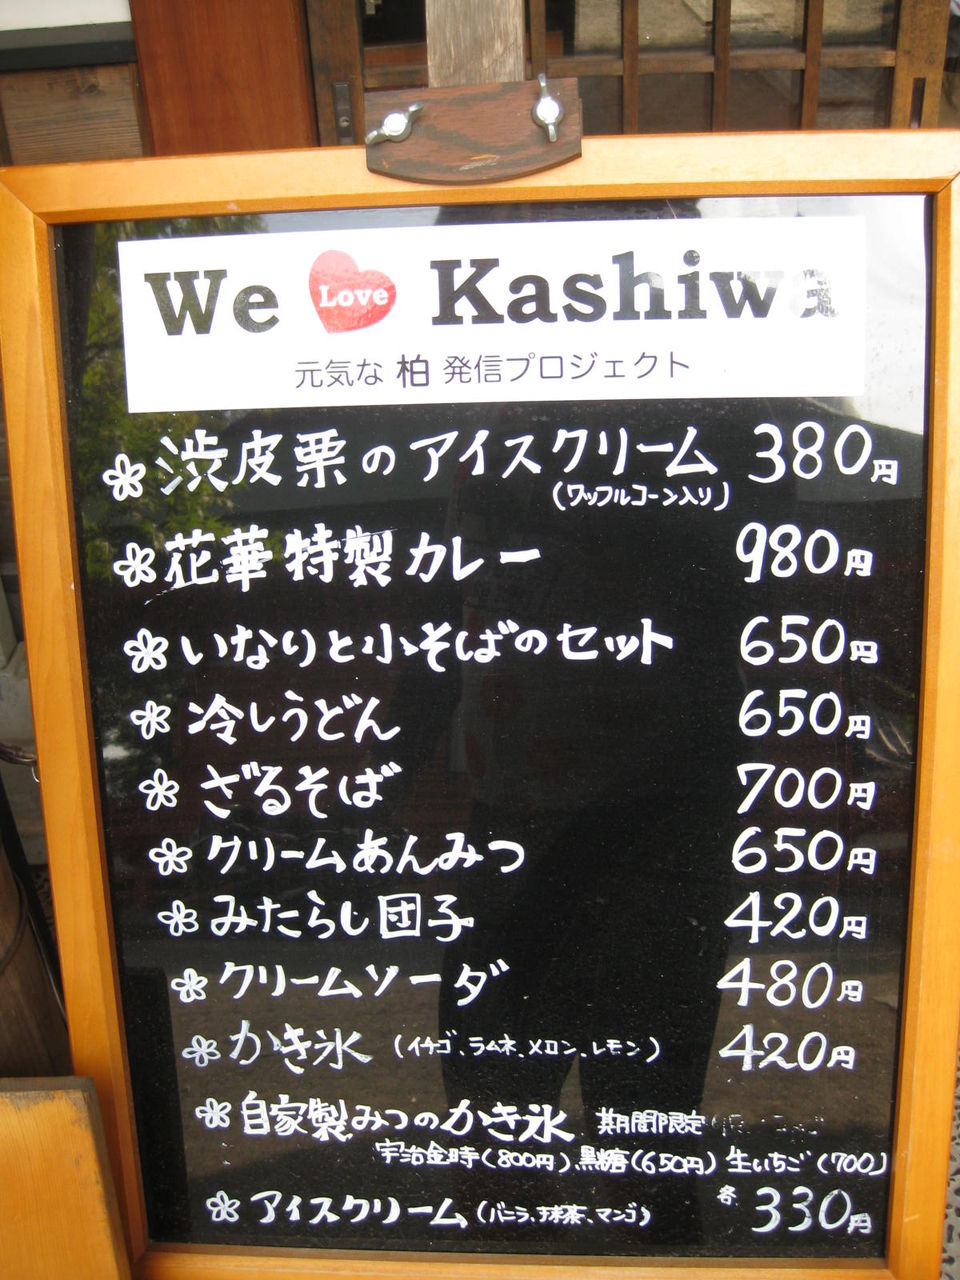 We Love Kashiwa
元気な 柏 発信プロジェクト
渋皮栗のアイスクリーム 380円
(ワッフルコーン入り)
花華特製カレー 980円
いなりと小そばのセット 650円
冷しうどん 650円
ざるそば 700円
クリームあんみつ 650円
みたらし団子 420円
クリームソーダ 480円
かき氷 (イチゴ、ラムネ、メロン、レモン) 420円
自家製みつのかき氷 期間限定
宇治金時(800円)、黒糖(650円) 生いちご(700)
アイスクリーム(バニラ、抹茶、マンゴ) 各330円